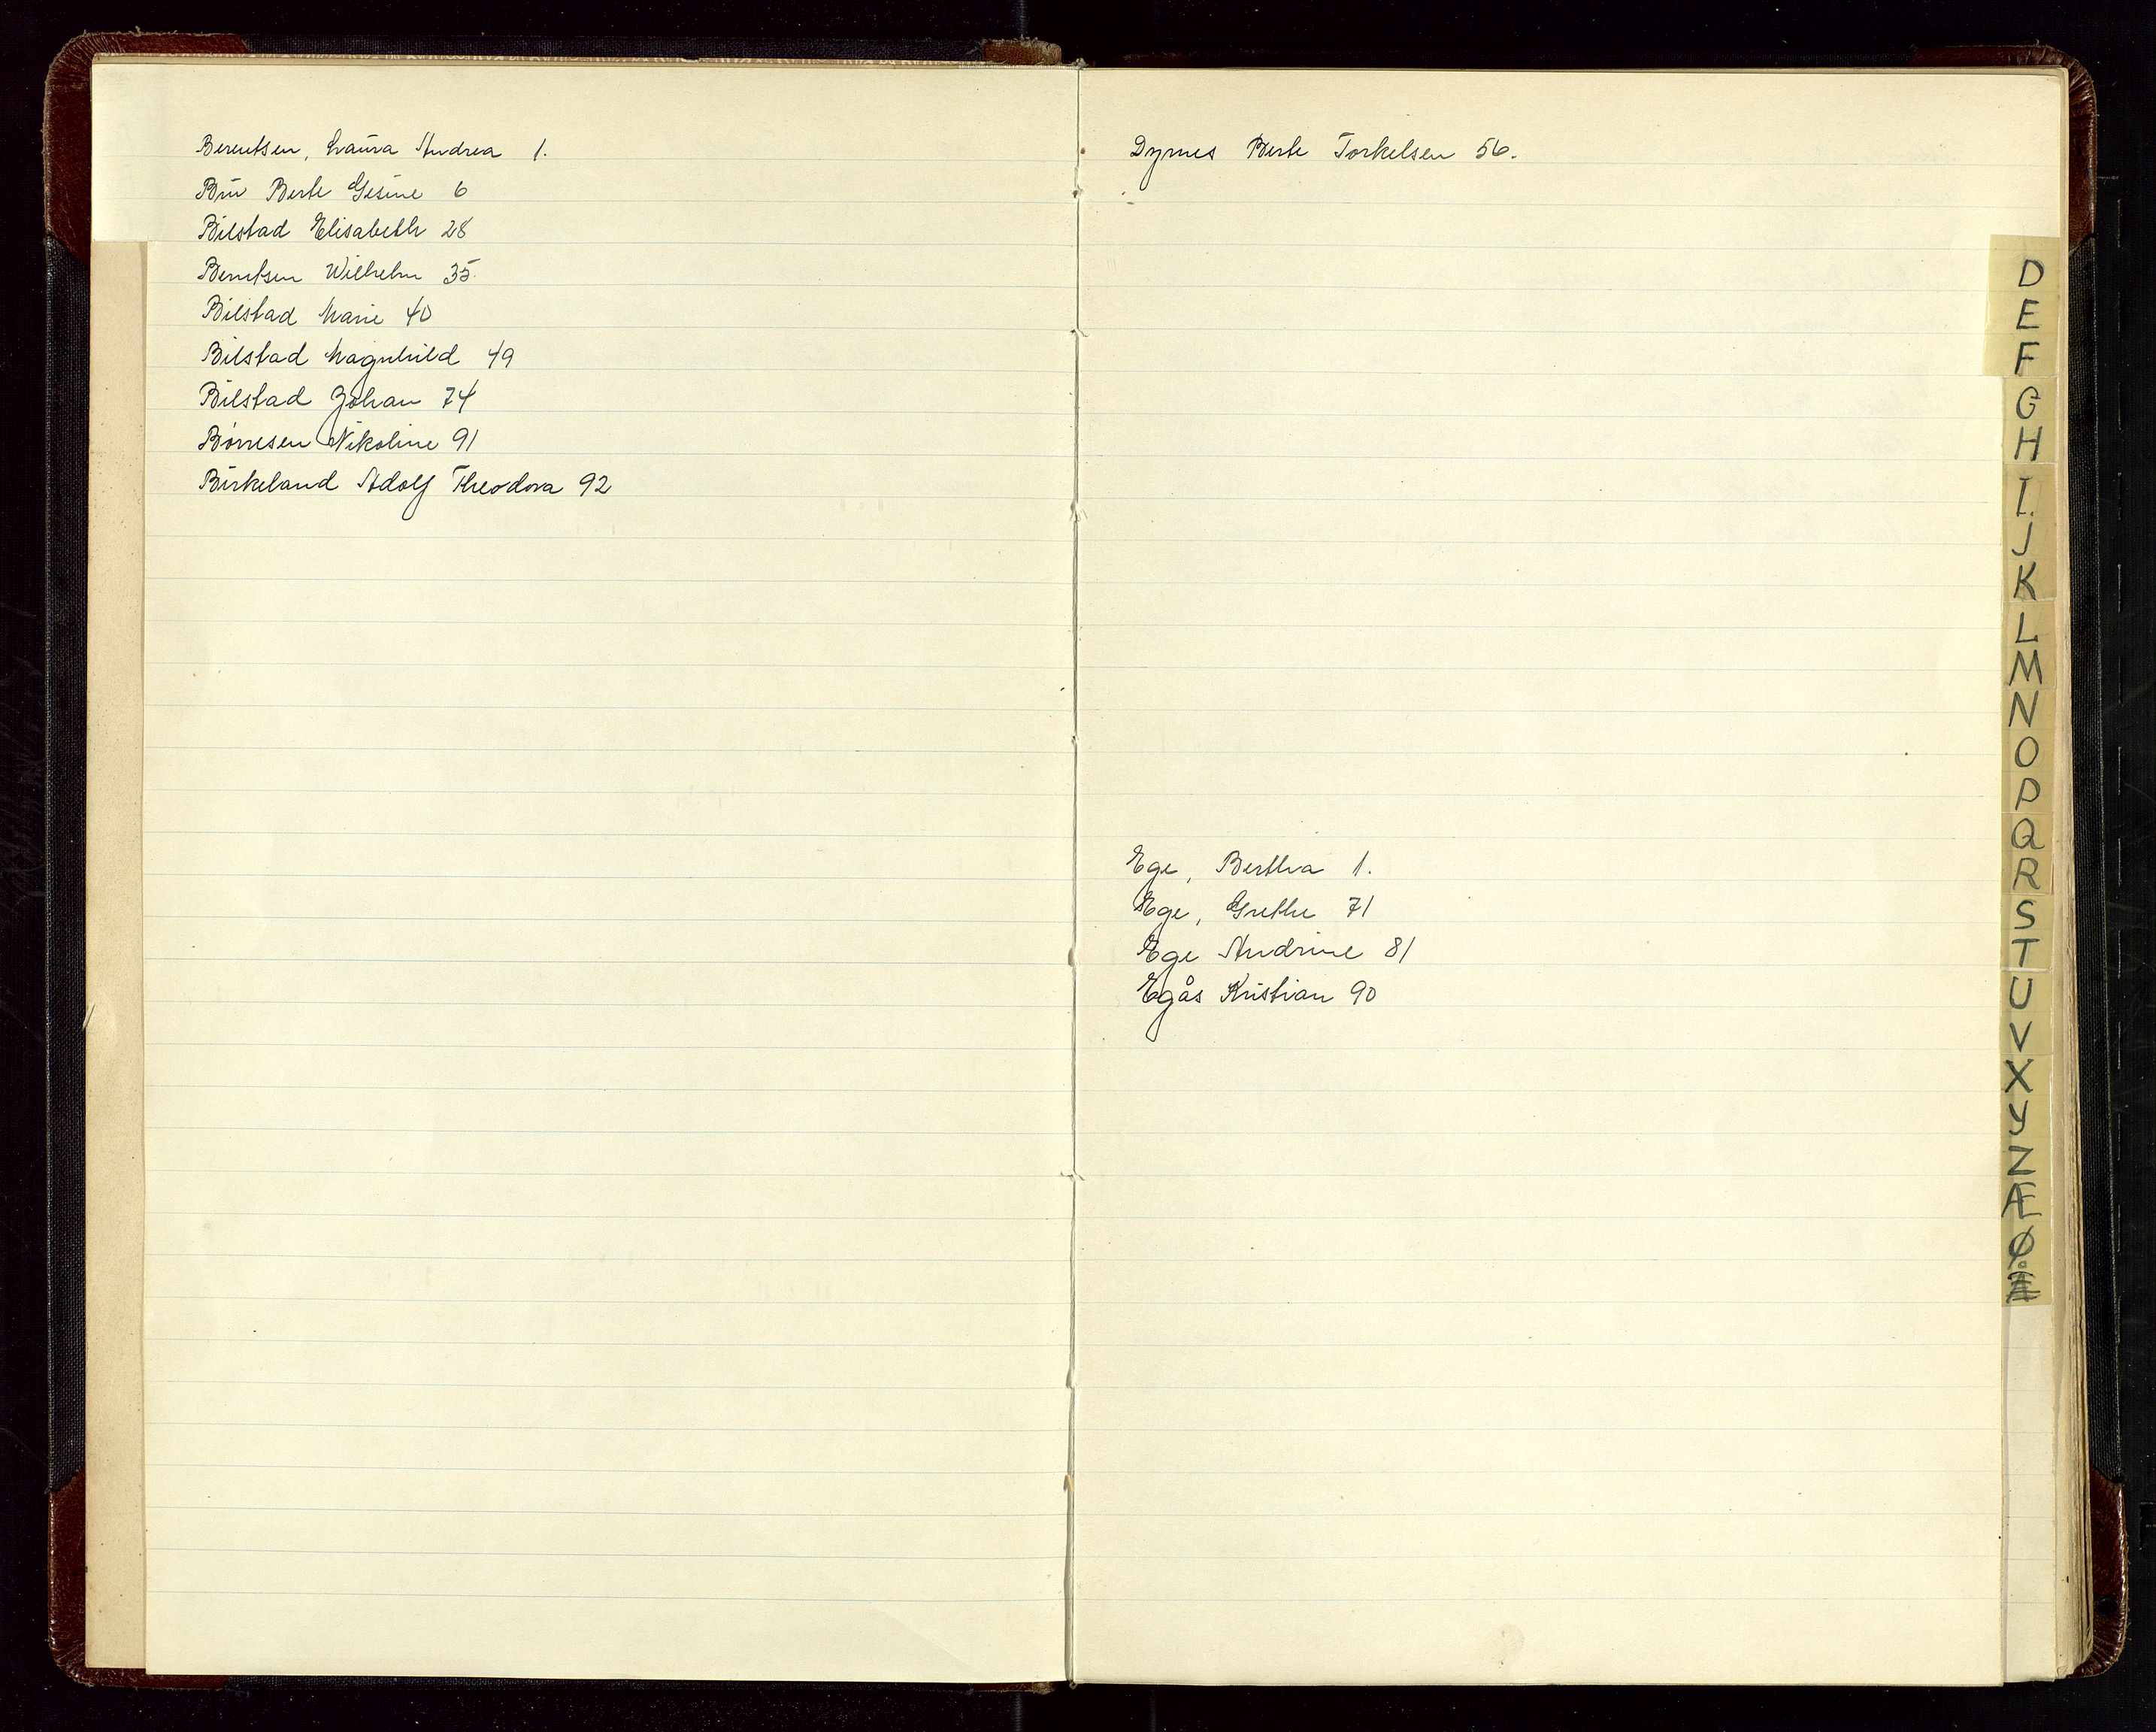 Berentsen, Laura Andrea 1.
Bru Berte Gesine 6
Bilstad Elisabeth 28
Berntsen Wilhelm 35
Bilstad Marie 40
Bilstad Magnhild 49
Bilstad Johan 74
Børresen Nikoline 91
Birkeland Adolf Theodora 92
Dymes Berte Torkelsen 56.
Ege, Bertha 1.
Ege, Grethe 71
Ege Andrine 81
Egås Kristian 90
D
E
F
G
H
I
J
K
L
M
N
O
P
Q
R
S
T
U
V
X
Y
Z
Æ
Ø